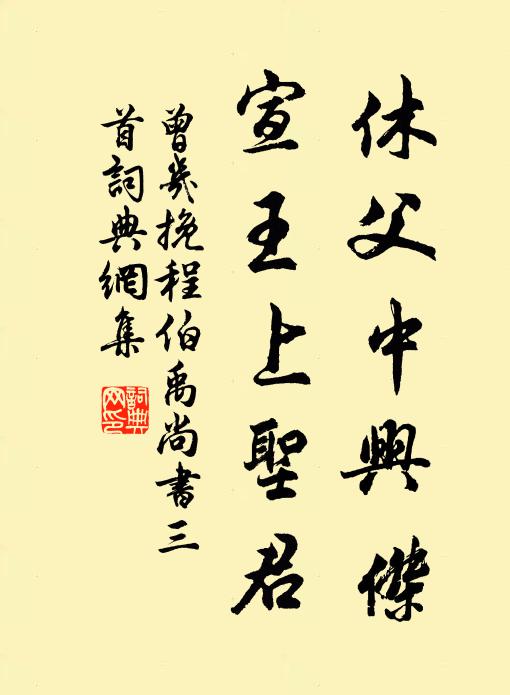 休父中興傑
宣王上聖君
曾幾挽程伯禹尚書三
首詞典網集
詞典网印